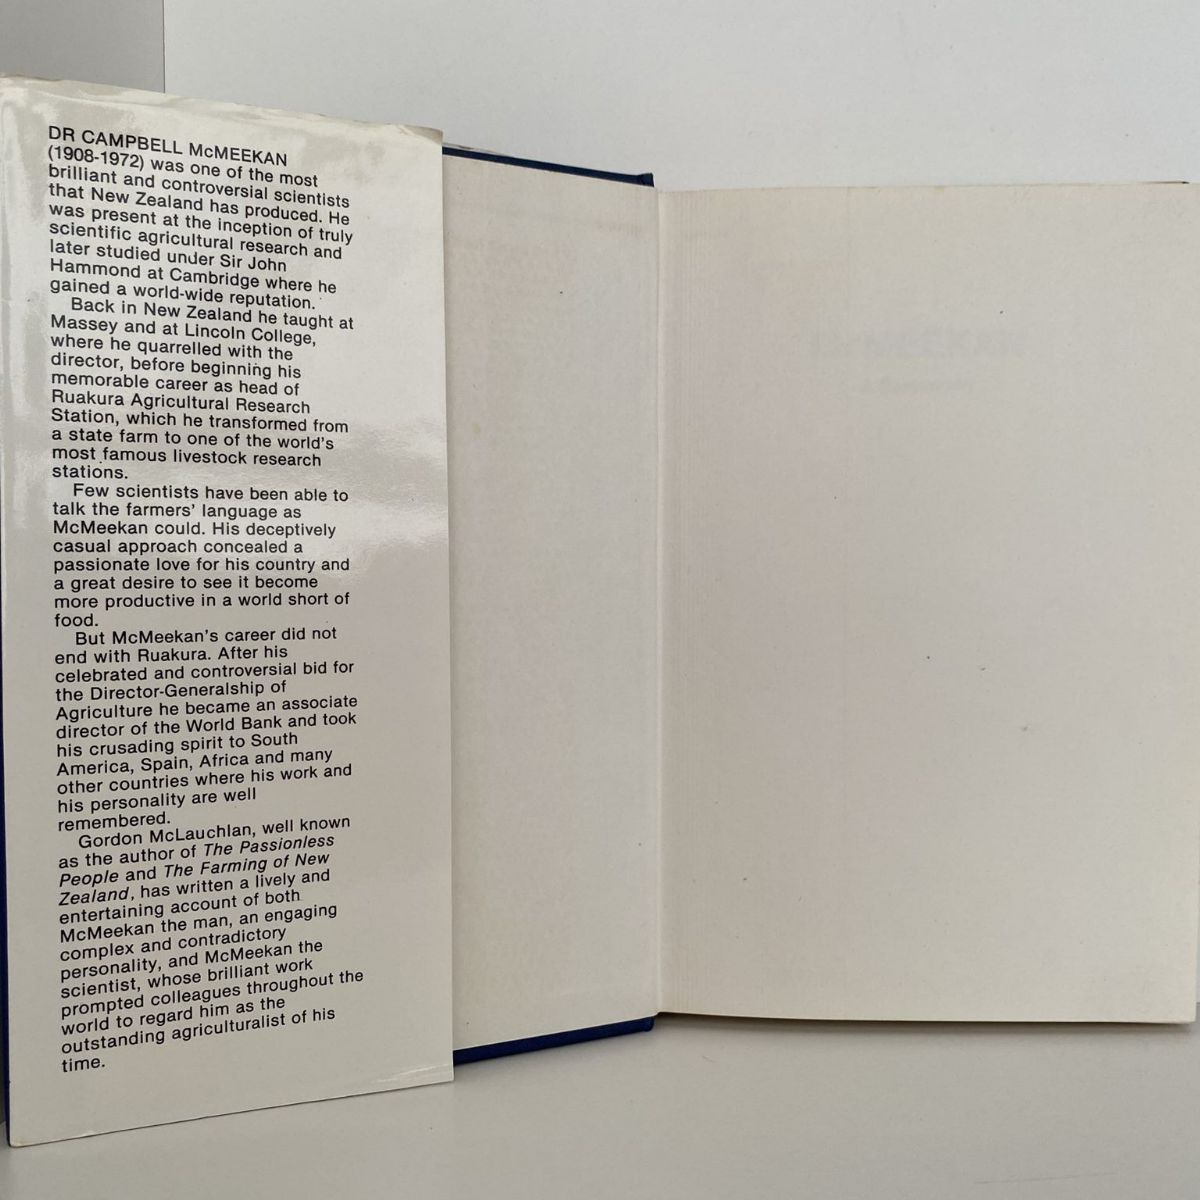 DR CAMPBELL McMEEKAN
(1908-1972) was one of the most
brilliant and controversial scientists
that New Zealand has produced. He
was present at the inception of truly
scientific agricultural research and
later studied under Sir John
Hammond at Cambridge where he
gained a world-wide reputation.
Back in New Zealand he taught at
Massey and at Lincoln College,
where he quarrelled with the
director, before beginning his
memorable career as head of
Ruakura Agricultural Research
Station, which he transformed from
a state farm to one of the world's
most famous livestock research
stations.
Few scientists have been able to
talk the farmers' language as
McMeekan could. His deceptively
casual approach concealed a
passionate love for his country and
a great desire to see it become
more productive in a world short of
food.
But McMeekan's career did not
end with Ruakura. After his
celebrated and controversial bid for
the Director-Generalship of
Agriculture he became an associate
director of the World Bank and took
his crusading spirit to South
America, Spain, Africa and many
other countries where his work and
his personality are well
remembered.
Gordon McLauchlan, well known
as the author of The Passionless
People and The Farming of New
Zealand, has written a lively and
entertaining account of both
McMeekan the man, an engaging
complex and contradictory
personality, and McMeekan the
scientist, whose brilliant work
prompted colleagues throughout the
world to regard him as the
outstanding agriculturalist of his
time.